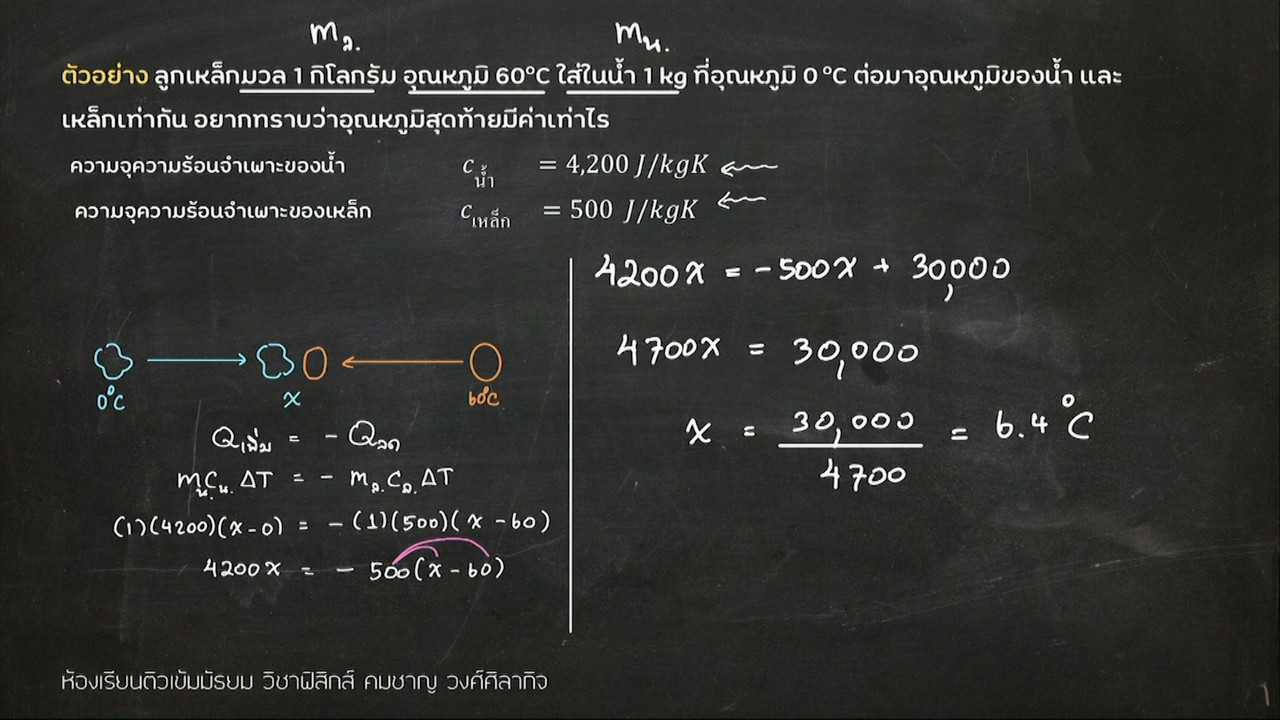 mล. mน.
ตัวอย่าง ลูกเหล็กมวล 1 กิโลกรัม อุณหภูมิ 60°C ใส่ในน้ำ 1 kg ที่อุณหภูมิ 0 °C ต่อมาอุณหภูมิของน้ำ และ
เหล็กเท่ากัน อยากทราบว่าอุณหภูมิสุดท้ายมีค่าเท่าไร
ความจุความร้อนจำเพาะของน้ำ c น้ำ = 4,200 J/kgK ←
ความจุความร้อนจำเพาะของเหล็ก c เหล็ก = 500 J/kgK ←
0°C x 60°C
Qเพิ่ม = - Qลด
mน.cน. ΔT = - mล.cล. ΔT
(1)(4200)(x-0) = -(1)(500)(x-60)
4200x = - 500(x-60)
4200x = -500x + 30,000
4700x = 30,000
x = 30,000 = 6.4 °C
4700
ห้องเรียนติวเข้มมัธยม วิชาฟิสิกส์ คมชาญ วงศ์ศิลากิจ